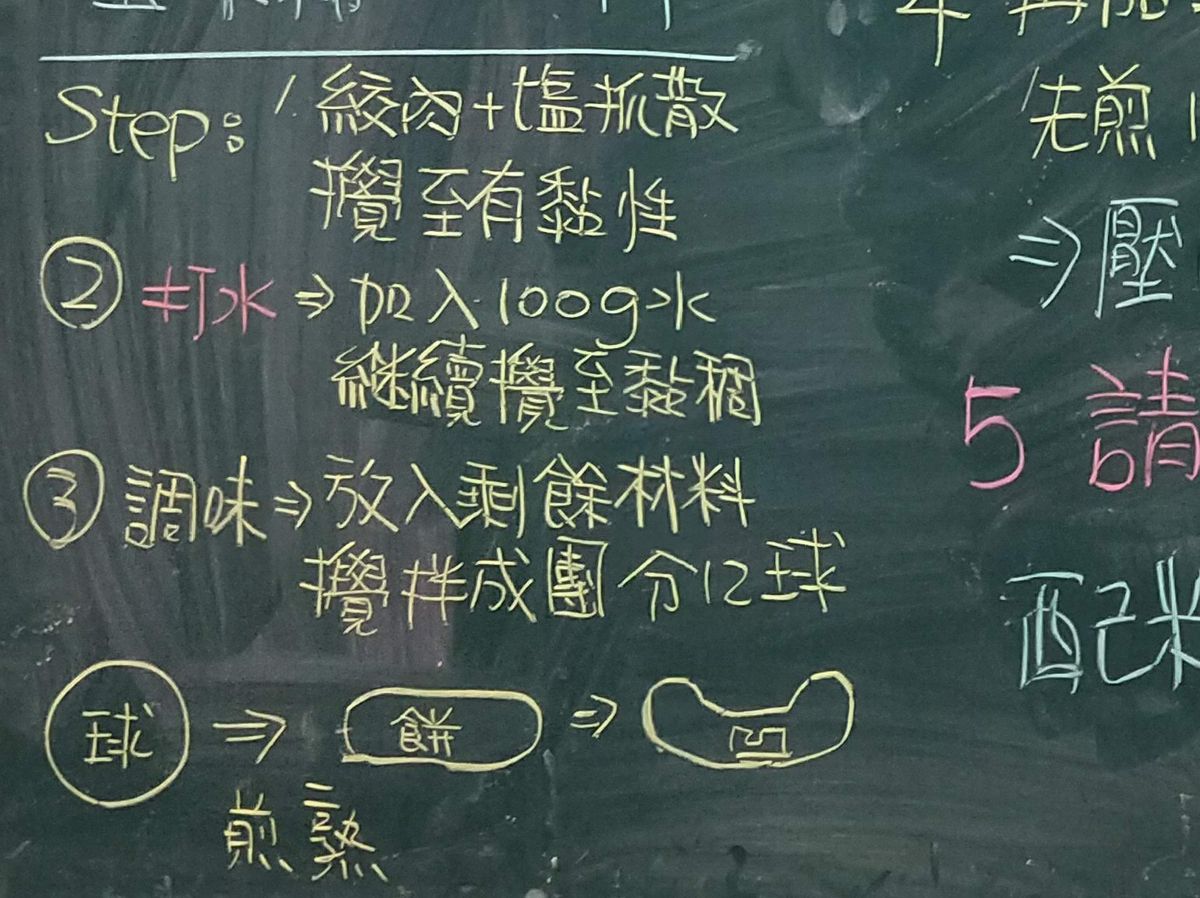 Step: 1. 絞肉+塩抓散
攪至有黏性
② 打水⇒加入100g水
繼續攪至黏稠
③ 調味⇒放入剩餘材料
攪拌成團分12球
球⇒餅⇒凹
煎熟
先煎
⇒壓
5 請
配